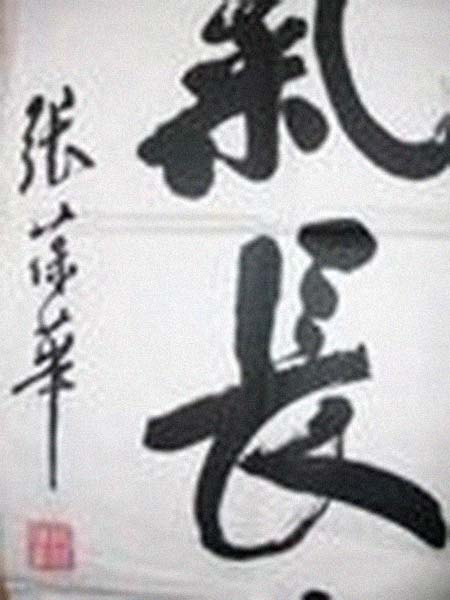 氣長
張葆華